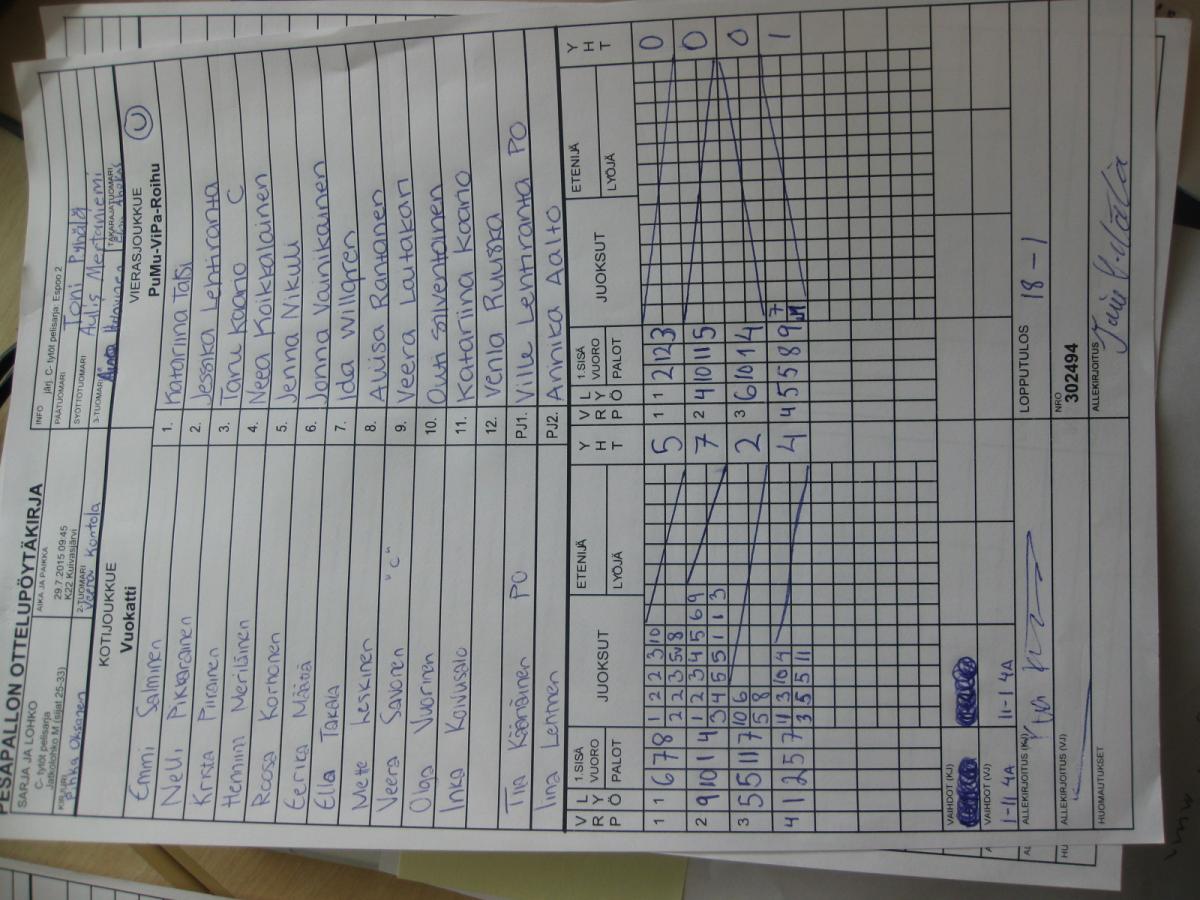 PESÄPALLON OTTELUPÖYTÄKIRJA
SARJA JA LOHKO
C- tytöt pelisarja
Jatkolohko M (sijat 25-33)
AIKA JA PAIKKA
29.7.2015 09:45
K22 Kuivasjärvi
INFO järj. C- tytöt pelisarja: Espoo 2
PÄÄTUOMARI Toni Pyhälä
SYÖTTÖTUOMARI Aulis Mertaniemi
KIRJURI
Pihka Oksanen
2-TUOMARI
Veera Kontola
3-TUOMARI
TAKARAJATUOMARI
KOTIJOUKKUE
Vuokatti
VIERASJOUKKUE
PuMu-ViPa-Roihu U
Emmi Salminen 1. Katariina Tatsi
Nelli Pikkarainen 2. Jessika Lehtiranta
Krista Piirainen 3. Taru Kaario C
Henniina Meriläinen 4. Neea Koikkalainen
Roosa Korhonen 5. Jenna Nikuli
Eerika Määttä 6. Jonna Vainikainen
Ella Takala 7. Ida Willgren
Mette Leskinen 8. Aliisa Rantanen
Veera Savonen "C" 9. Veera Lautakari
Olga Vuorinen 10. Outi Silventoinen
Inka Koivusalo 11. Katariina Kaario
12. Venla Ruuska
Tiia Käänäinen PO PJ1. Ville Lehtiranta PO
Iina Lehmen PJ2. Annika Aalto
V R P L Y Ö 1.SISÄ VUORO PALOT JUOKSUT ETENIJÄ LYÖJÄ Y H T V R P L Y Ö 1.SISÄ VUORO PALOT JUOKSUT ETENIJÄ LYÖJÄ Y H T
1 1 6 7 8 1 2 2 3 10 5 1 1 2 12 3 0
2 2 3 5v 8
2 9 10 1 4 1 2 3 4 5 6 9 7 2 4 10 11 5 0
3 4 5 5 1 1 3
3 5 5 11 7 10 6 2 3 6 10 1 4 0
5 8
4 1 2 5 7 11 3 10 4 4 4 5 5 8 9 7 1
3 5 5 11
VAIHDOT (KJ)
VAIHDOT (VJ)
1-11 4A 11-1 4A
LOPPUTULOS 18 - 1
ALLEKIRJOITUS (KJ)
NRO
302494
ALLEKIRJOITUS (VJ)
ALLEKIRJOITUS
HUOMAUTUKSET